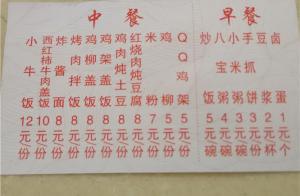 中餐
小牛饭 12元/份
西红柿牛肉饭 10元/份
炸酱面 8元/份
烤肉拌饭 8元/份
鸡柳盖饭 10元/份
鸡肉盖饭 10元/份
鸡肉炖土豆 8元/份
红烧肉炖豆腐 8元/份
米粉 7元/份
鸡柳 5元/份
QQ鸡架 5元/份
早餐
炒饭 5元/碗
八宝粥 2元/碗
小米粥 2元/碗
手抓饼 5元/份
豆浆 2元/杯
卤蛋 1元/个